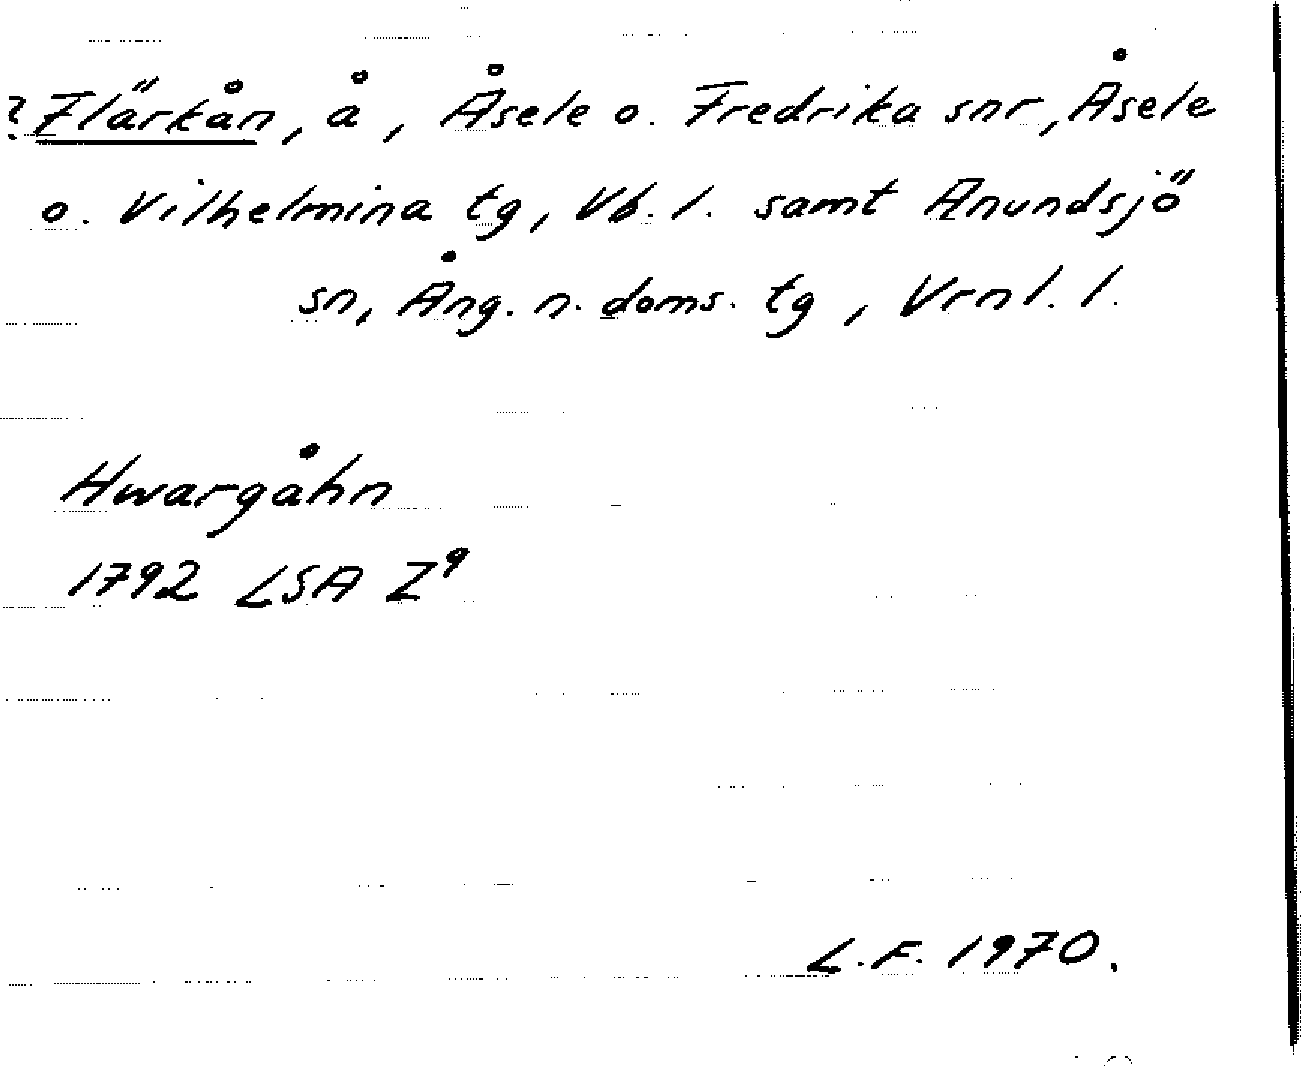 ? Flärkån, å, Åsele o. Fredrika snr, Åsele
o. Vilhelmina tg, Vb. l. samt Anundsjö
sn, Ång. n. doms. tg, Vrnl. l.
Hwargåhn
1792 LSA Z9
L.F. 1970.